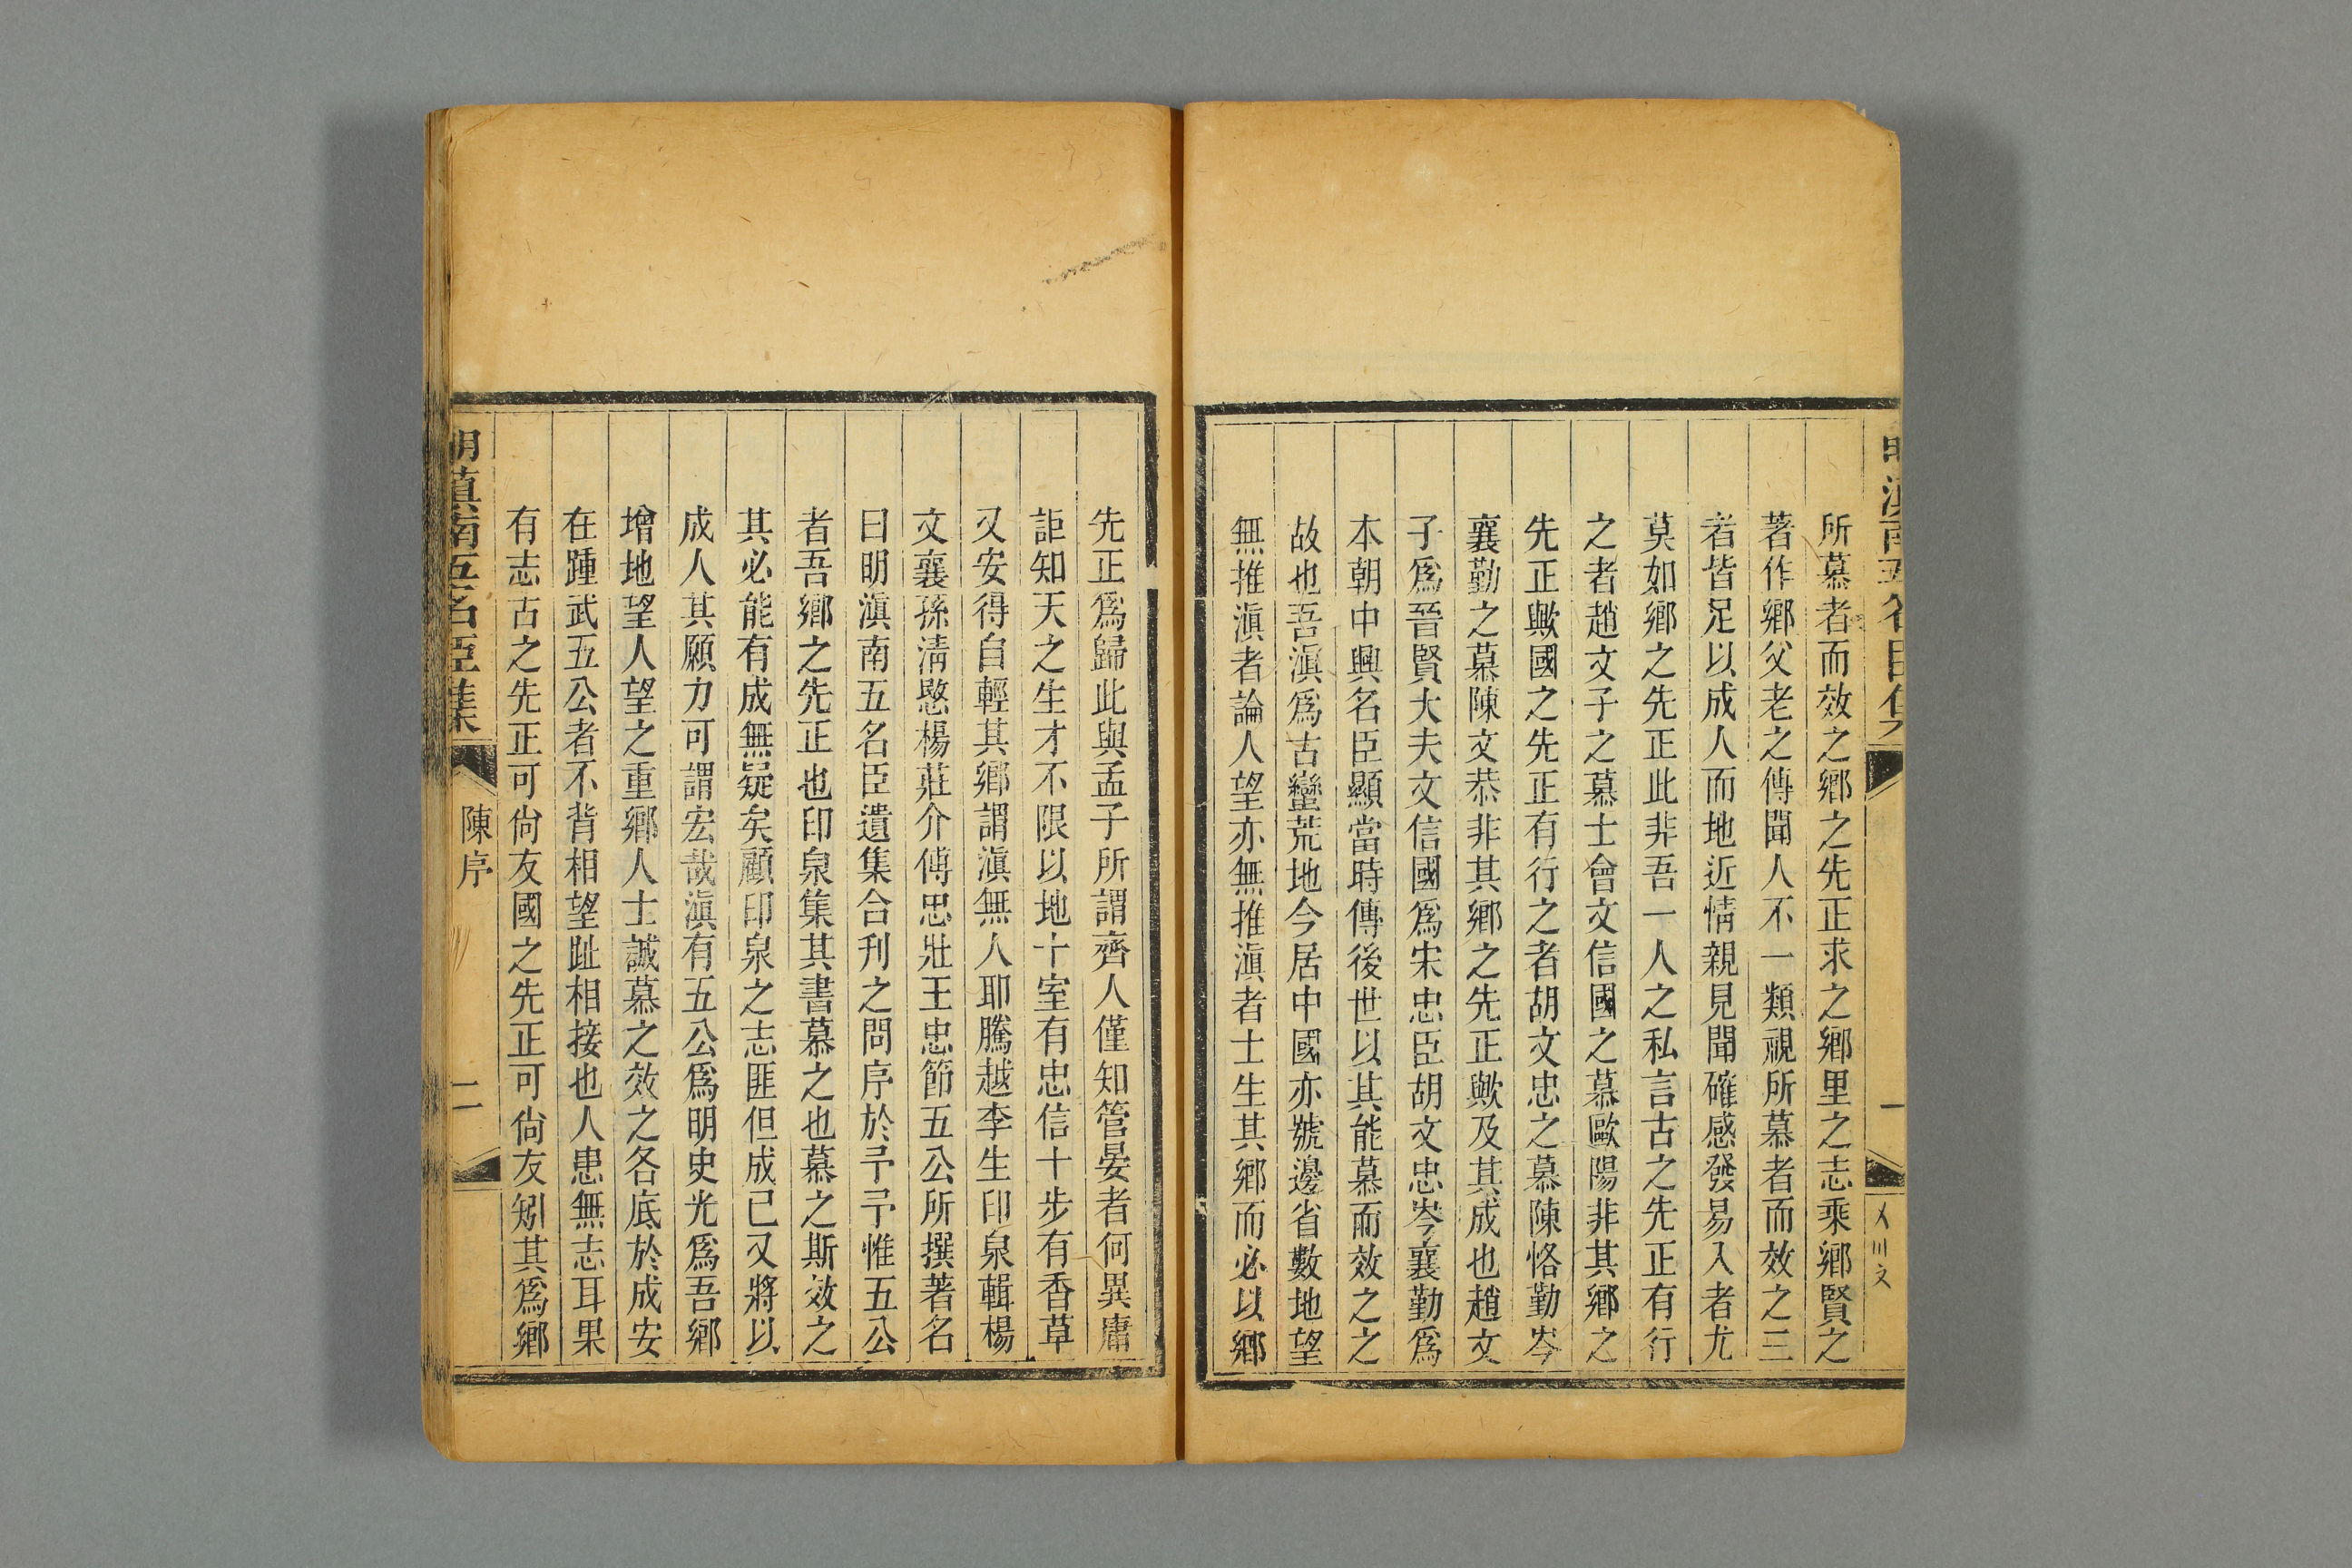 所慕者而效之鄉之先正求之鄉里之志乘鄉賢之
著作鄉父老之傳聞人不一類視所慕者而效之三
者皆足以成人而地近情親見聞確感發易入者尤
莫如鄉之先正此非吾一人之私言古之先正有行
之者趙文子之慕士會文信國之慕歐陽非其鄉之
先正歟國之先正有行之者胡文忠之慕陳恪勤岑
襄勤之慕陳文恭非其鄉之先正歟及其成也趙文
子爲晉賢大夫文信國爲宋忠臣胡文忠岑襄勤爲
本朝中興名臣顯當時傳後世以其能慕而效之之
故也吾滇爲古蠻荒地今居中國亦號邊省數地望
無推滇者論人望亦無推滇者士生其鄉而必以鄉
先正爲歸此與孟子所謂齊人僅知管晏者何異庸
詎知天之生才不限以地十室有忠信十步有香草
又安得自輕其鄉謂滇無人耶騰越李生印泉輯楊
文襄孫淸愍楊莊介傅忠壯王忠節五公所撰著名
曰明滇南五名臣遺集合刋之問序於予予惟五公
者吾鄉之先正也印泉集其書慕之也慕之斯效之
其必能有成無疑矣顧印泉之志匪但成已又將以
成人其願力可謂宏哉滇有五公爲明史光爲吾鄉
增地望人望之重鄉人士誠慕之效之各底於成安
在踵武五公者不背相望趾相接也人患無志耳果
有志古之先正可尙友國之先正可尙友矧其爲鄉
明滇南五名臣集
陳序
二